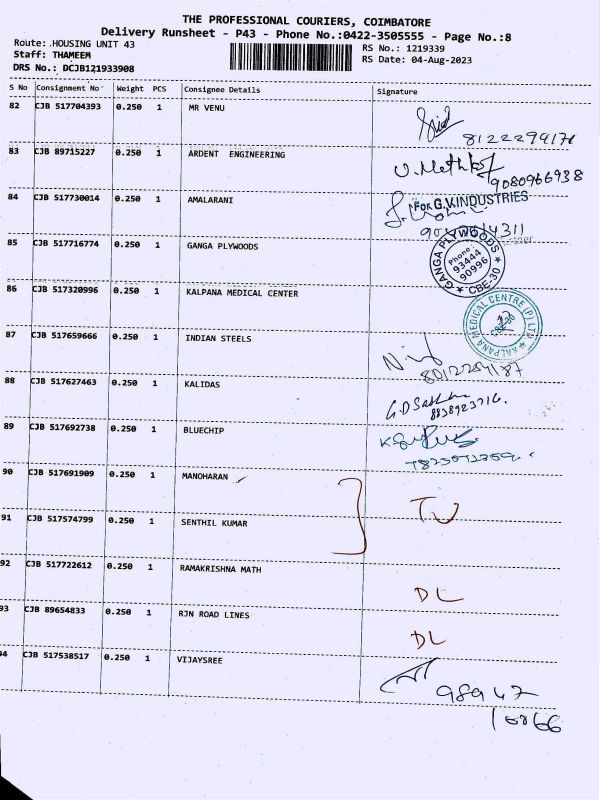 THE PROFESSIONAL COURIERS, COIMBATORE
Delivery Runsheet - P43 - Phone No.:0422-3505555 - Page No.:8
Route: HOUSING UNIT 43
RS No.: 1219339
Staff: THAMEEM
RS Date: 04-Aug-2023
DRS No.: DCJB121933908
S No Consignment No Weight PCS Consignee Details Signature
82 CJB 517704393 0.250 1 MR VENU
8122294176
83 CJB 89715227 0.250 1 ARDENT ENGINEERING
9080966938
84 CJB 517730014 0.250 1 AMALARANI
For G.V.INDUSTRIES
85 CJB 517716774 0.250 1 GANGA PLYWOODS
GANGA PLYWOODS
Phone:
93444
90996
★ CBE-30 ★
86 CJB 517320996 0.250 1 KALPANA MEDICAL CENTER
KALPANA MEDICAL CENTRE (P) LTD
CBE-30
87 CJB 517659666 0.250 1 INDIAN STEELS
88 CJB 517627463 0.250 1 KALIDAS
89 CJB 517692738 0.250 1 BLUECHIP
90 CJB 517691909 0.250 1 MANOHARAN
91 CJB 517574799 0.250 1 SENTHIL KUMAR
92 CJB 517722612 0.250 1 RAMAKRISHNA MATH
DL
93 CJB 89654833 0.250 1 RJN ROAD LINES
DL
94 CJB 517538517 0.250 1 VIJAYSREE
98947
10866